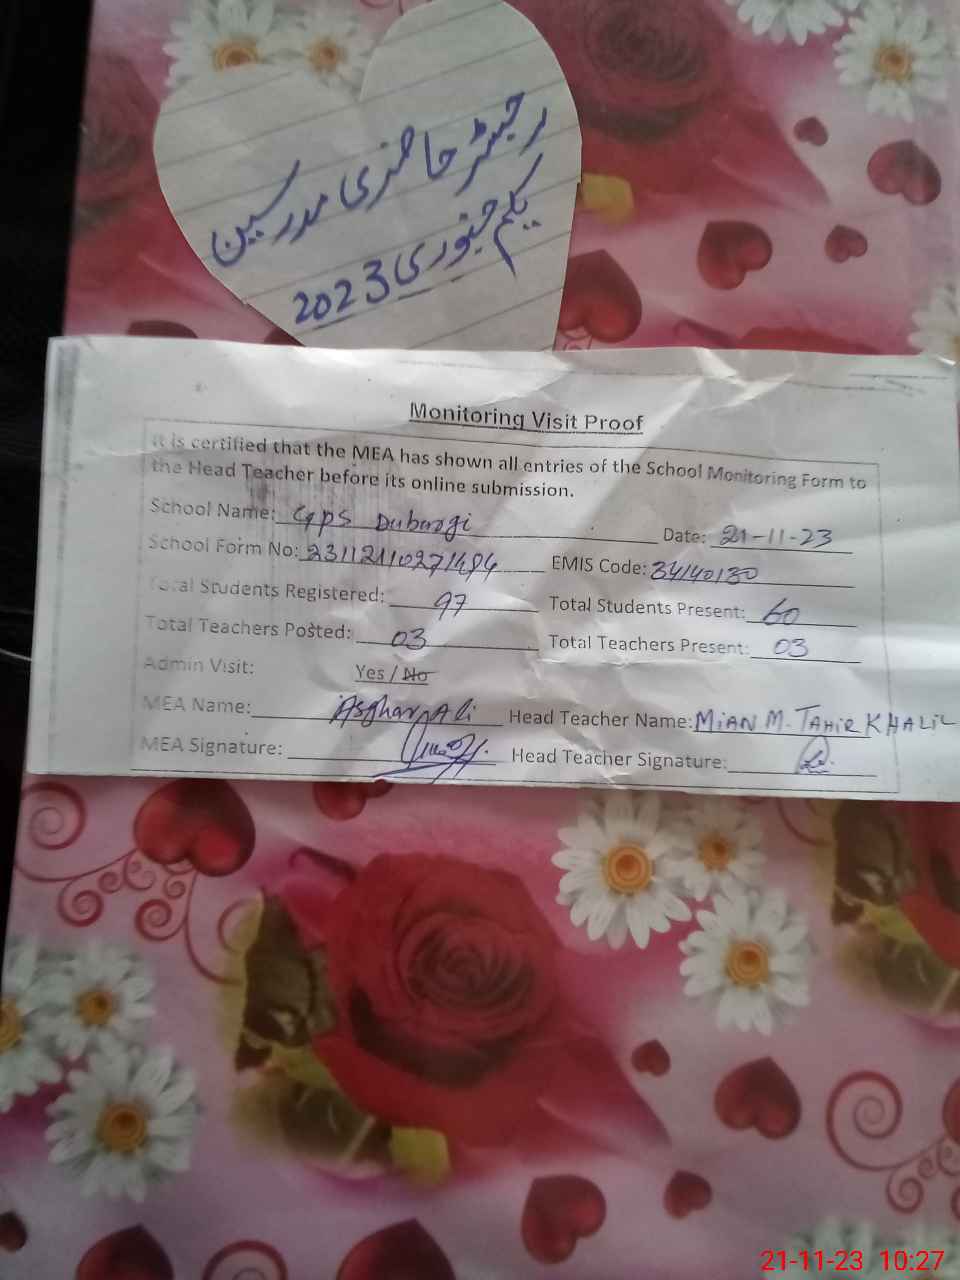 رجسٹر حاضری مدرسین
یکم جنوری 2023
Monitoring Visit Proof
It is certified that the MEA has shown all entries of the School Monitoring Form to
the Head Teacher before its online submission.
School Name: GPS Dubarogi Date: 21-11-23
School Form No: 23112110271494 EMIS Code: 34140130
Total Students Registered: 97 Total Students Present: 60
Total Teachers Posted: 03 Total Teachers Present: 03
Admin Visit: Yes / No
MEA Name: Asghar Ali Head Teacher Name: MIAN M. TAHIR KHALIL
MEA Signature: Head Teacher Signature:
21-11-23 10:27